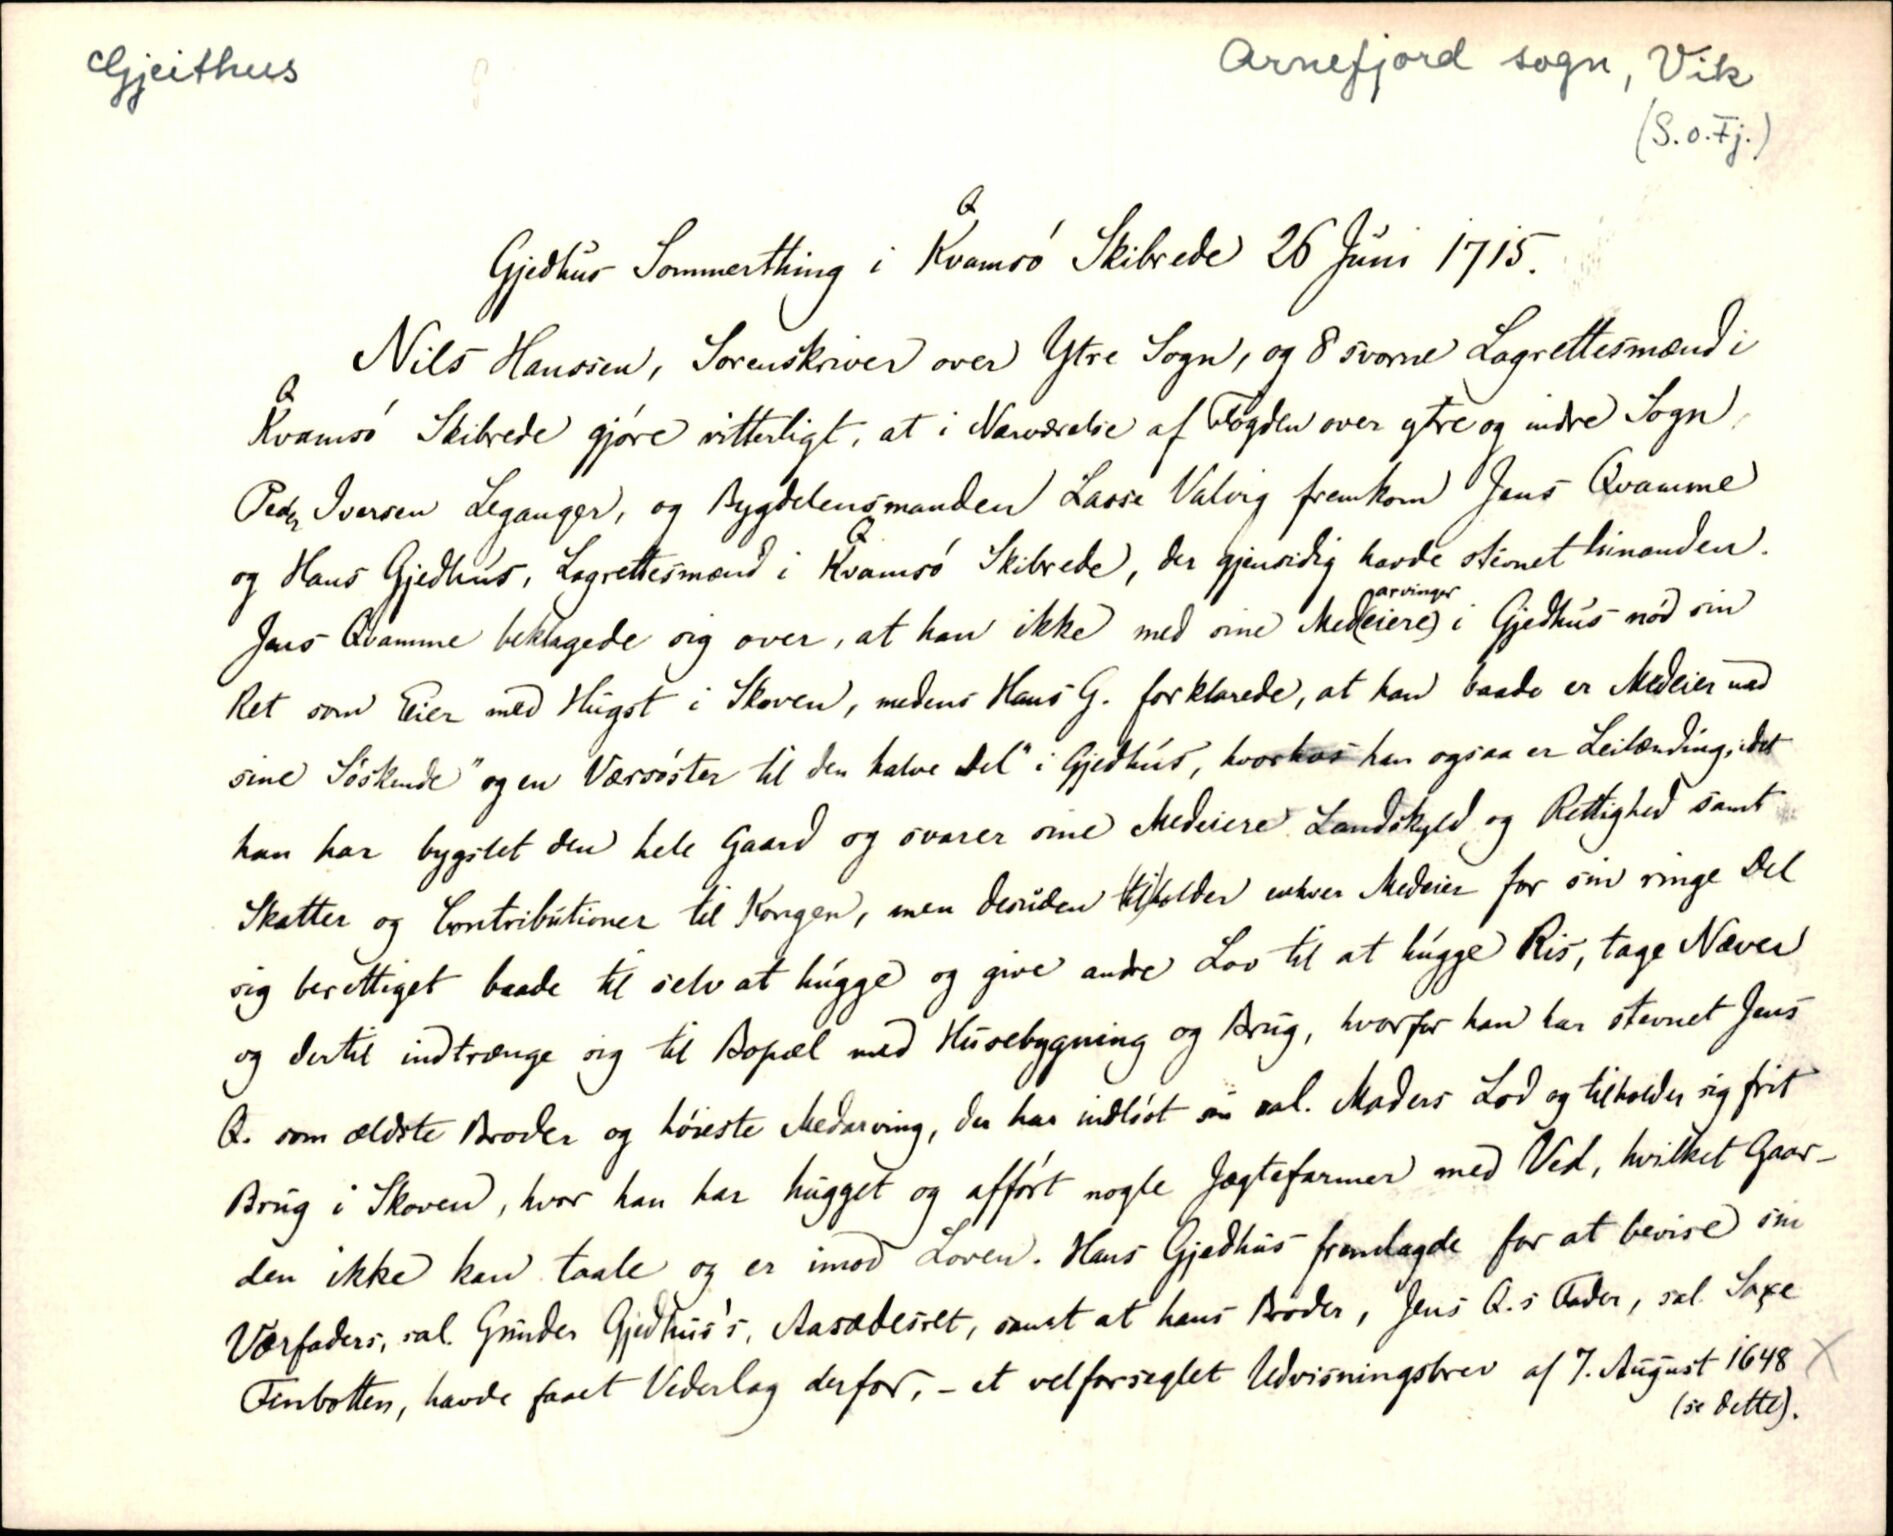 Gjeithus
Arnefjord sogn, Vik
(S. o. Fj.)
Q
Gjedhus Sommerthing i Kvamsö Skibrede 26 Juni 1715.
Nils Hanssen, Sorenskriver over Ytre Sogn, og 8 svorne Lagrettesmænd i
Q
Kvamsö Skibrede gjöre vitterligt, at i Nærværelse af Fogden over ytre og indre Sogn,
Peder Iversen Leganger, og Bygdelensmanden Lasse Valvig fremkom Jens Qvamme
Q
og Hans Gjedhus, Lagrettesmænd i Kvamsö Skibrede, der gjensidig havde stevnet hinanden.
arvinger
Jens Qvamme beklagede sig over, at han ikke med sine Med(eiere) i Gjedhus nöd sin
Ret som Eier med Hugst i Skoven, medens Hans G. forklarede, at han baade er Medeier med
sine Söskende "og en Værsöster til den halve Del" i Gjedhus, hvorhos han ogsaa er Leilænding, idet
han har bygslet den hele Gaard og svarer sine Medeiere Landskyld og Rettighed samt
Skatter og Contributioner til Kongen, men desuden tilholder enhver Medeier for sin ringe Del
sig berettiget baade til selv at hugge og give andre Lov til at hugge Ris, tage Næver
og dertil indtrænge sig til Bopæl med Husebygning og Brug, hvorfor han har stevnet Jens
Q. som ældste Broder og höieste Medarving, der har indlöst sin sal. Moders Lod og tilholder sig frit
Brug i Skoven, hvor han har hugget og afført nogle Jægtefarmer med Ved, hvilket Gaar-
den ikke kan taale og er imod Loven. Hans Gjedhus fremlagde for at bevise sin
Værfaders, sal. Gunder Gjedhus's, Aasædesret, samt at hans Broder, Jens Q.s Fader, sal. Saxe
Finbotten, havde faaet Vederlag derfor, - et velforseglet Udvisningsbrev af 7. August 1648 X
(se dette).